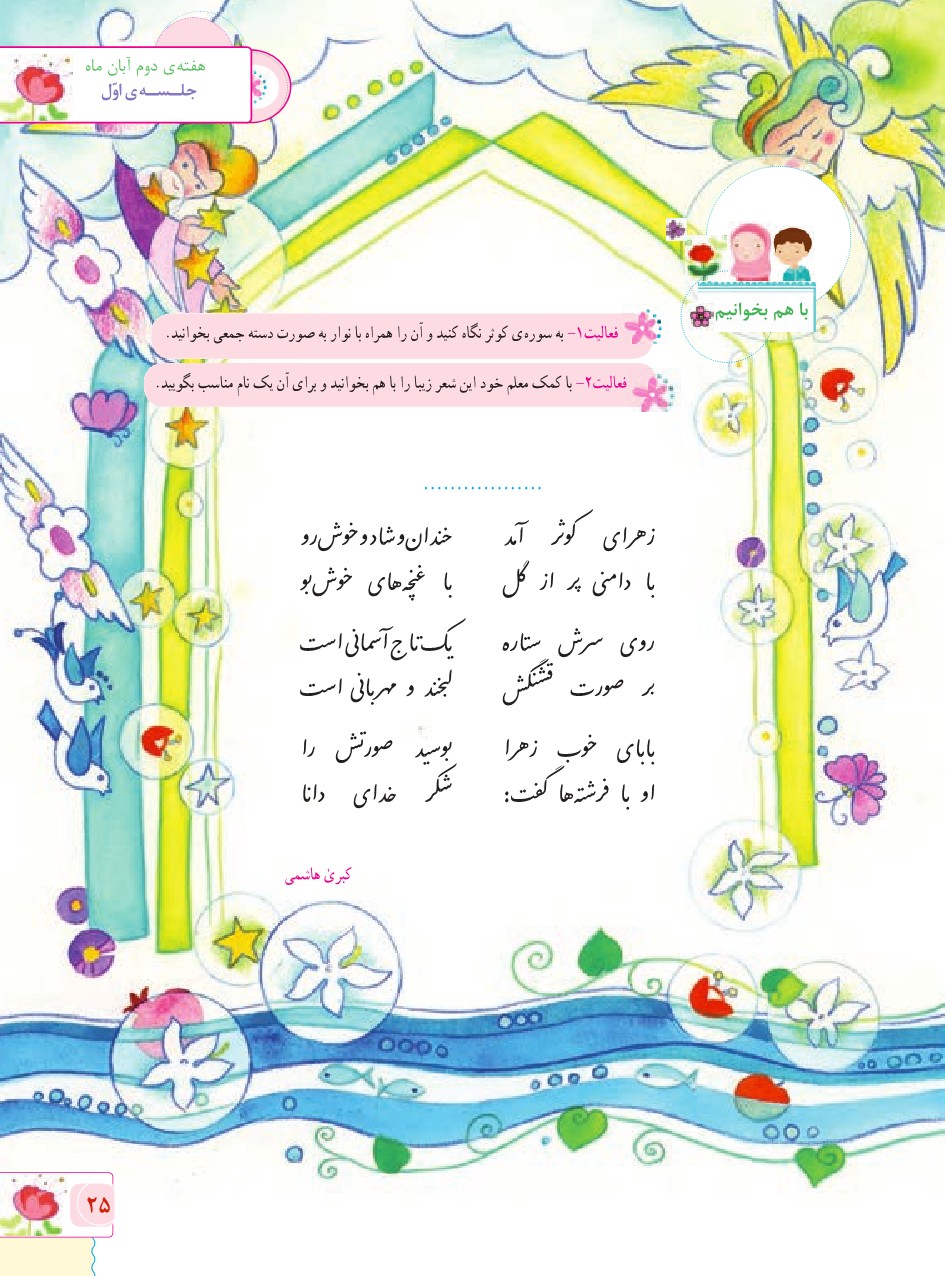 هفته‌ی دوم آبان ماه
جلسه‌ی اوّل
با هم بخوانیم
فعالیت۱- به سوره‌ی کوثر نگاه کنید و آن را همراه با نوار به صورت دسته جمعی بخوانید.
فعالیت۲- با کمک معلم خود این شعر زیبا را با هم بخوانید و برای آن یک نام مناسب بگویید.
..................
زهرای کوثر آمد خندان و شاد و خوش رو
با دامنی پر از گل با غنچه‌های خوش بو
روی سرش ستاره یک تاج آسمانی است
بر صورت قشنگش لبخند و مهربانی است
بابای خوب زهرا بوسید صورتش را
او با فرشته‌ها گفت: شکر خدای دانا
کبریٰ هاشمی
۲۵